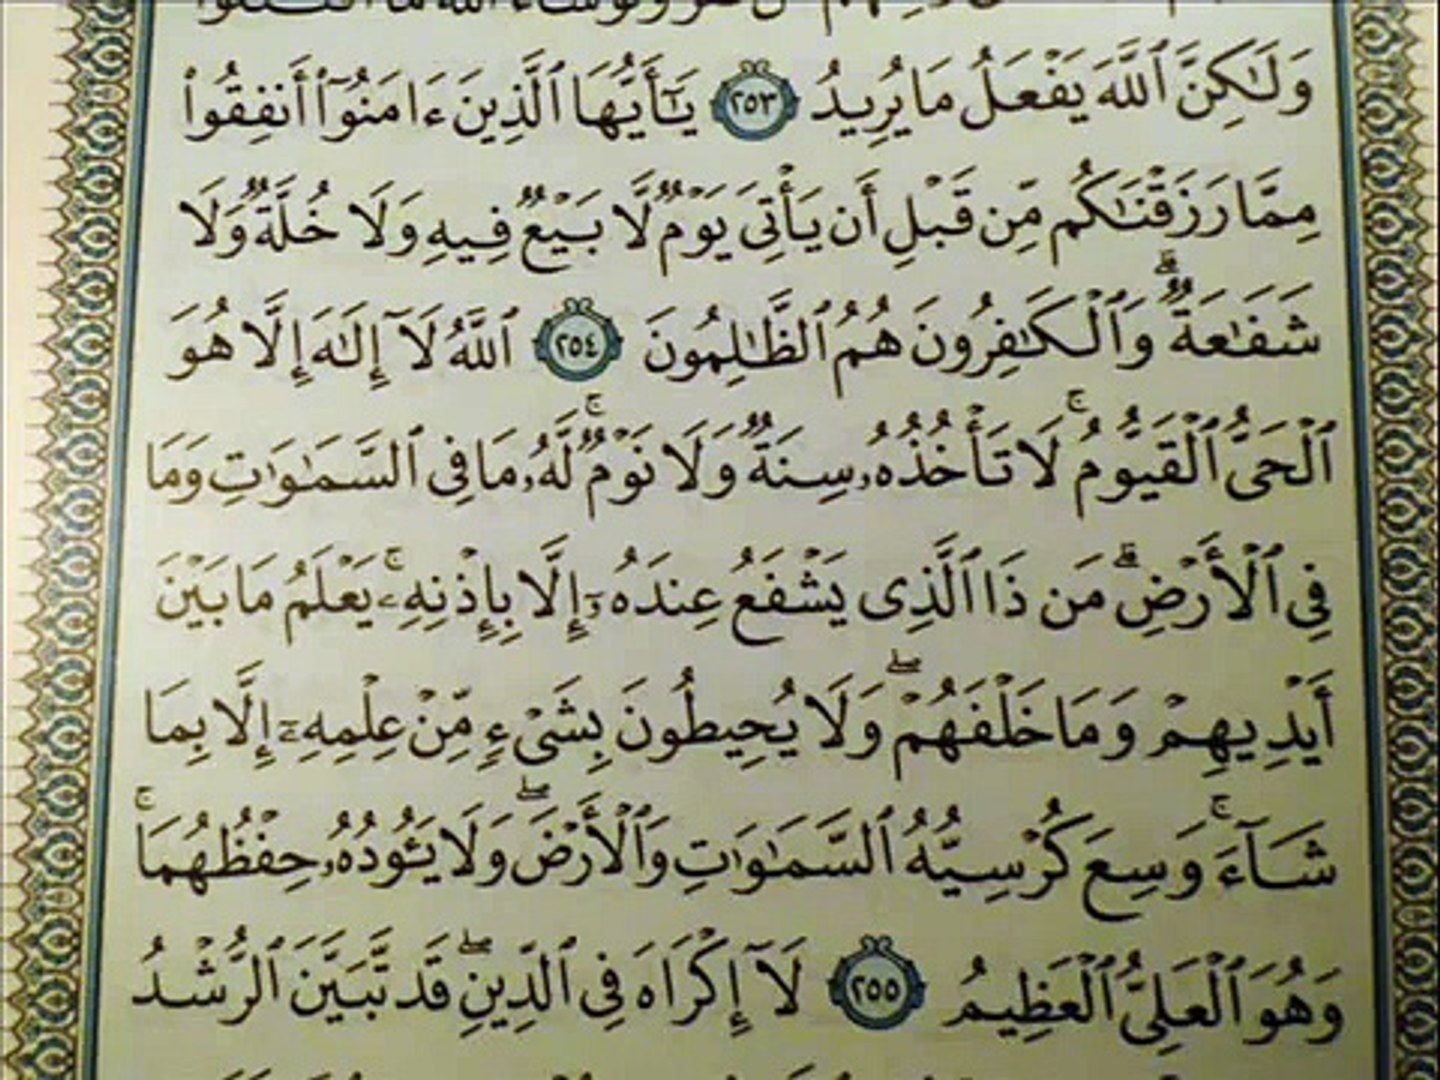 وَلَٰكِنَّ ٱللَّهَ يَفْعَلُ مَا يُرِيدُ ٢٥٣ يَٰٓأَيُّهَا ٱلَّذِينَ ءَامَنُوٓا۟ أَنفِقُوا۟
مِمَّا رَزَقْنَٰكُم مِّن قَبْلِ أَن يَأْتِىَ يَوْمٌ لَّا بَيْعٌ فِيهِ وَلَا خُلَّةٌ وَلَا
شَفَٰعَةٌ ۗ وَٱلْكَٰفِرُونَ هُمُ ٱلظَّٰلِمُونَ ٢٥٤ ٱللَّهُ لَآ إِلَٰهَ إِلَّا هُوَ
ٱلْحَىُّ ٱلْقَيُّومُ ۚ لَا تَأْخُذُهُۥ سِنَةٌ وَلَا نَوْمٌ ۚ لَّهُۥ مَا فِى ٱلسَّمَٰوَٰتِ وَمَا
فِى ٱلْأَرْضِ ۗ مَن ذَا ٱلَّذِى يَشْفَعُ عِندَهُۥٓ إِلَّا بِإِذْنِهِۦ ۚ يَعْلَمُ مَا بَيْنَ
أَيْدِيهِمْ وَمَا خَلْفَهُمْ ۖ وَلَا يُحِيطُونَ بِشَىْءٍ مِّنْ عِلْمِهِۦٓ إِلَّا بِمَا
شَآءَ ۚ وَسِعَ كُرْسِيُّهُ ٱلسَّمَٰوَٰتِ وَٱلْأَرْضَ ۖ وَلَا يَـُٔودُهُۥ حِفْظُهُمَا ۚ
وَهُوَ ٱلْعَلِىُّ ٱلْعَظِيمُ ٢٥٥ لَآ إِكْرَاهَ فِى ٱلدِّينِ ۖ قَد تَّبَيَّنَ ٱلرُّشْدُ